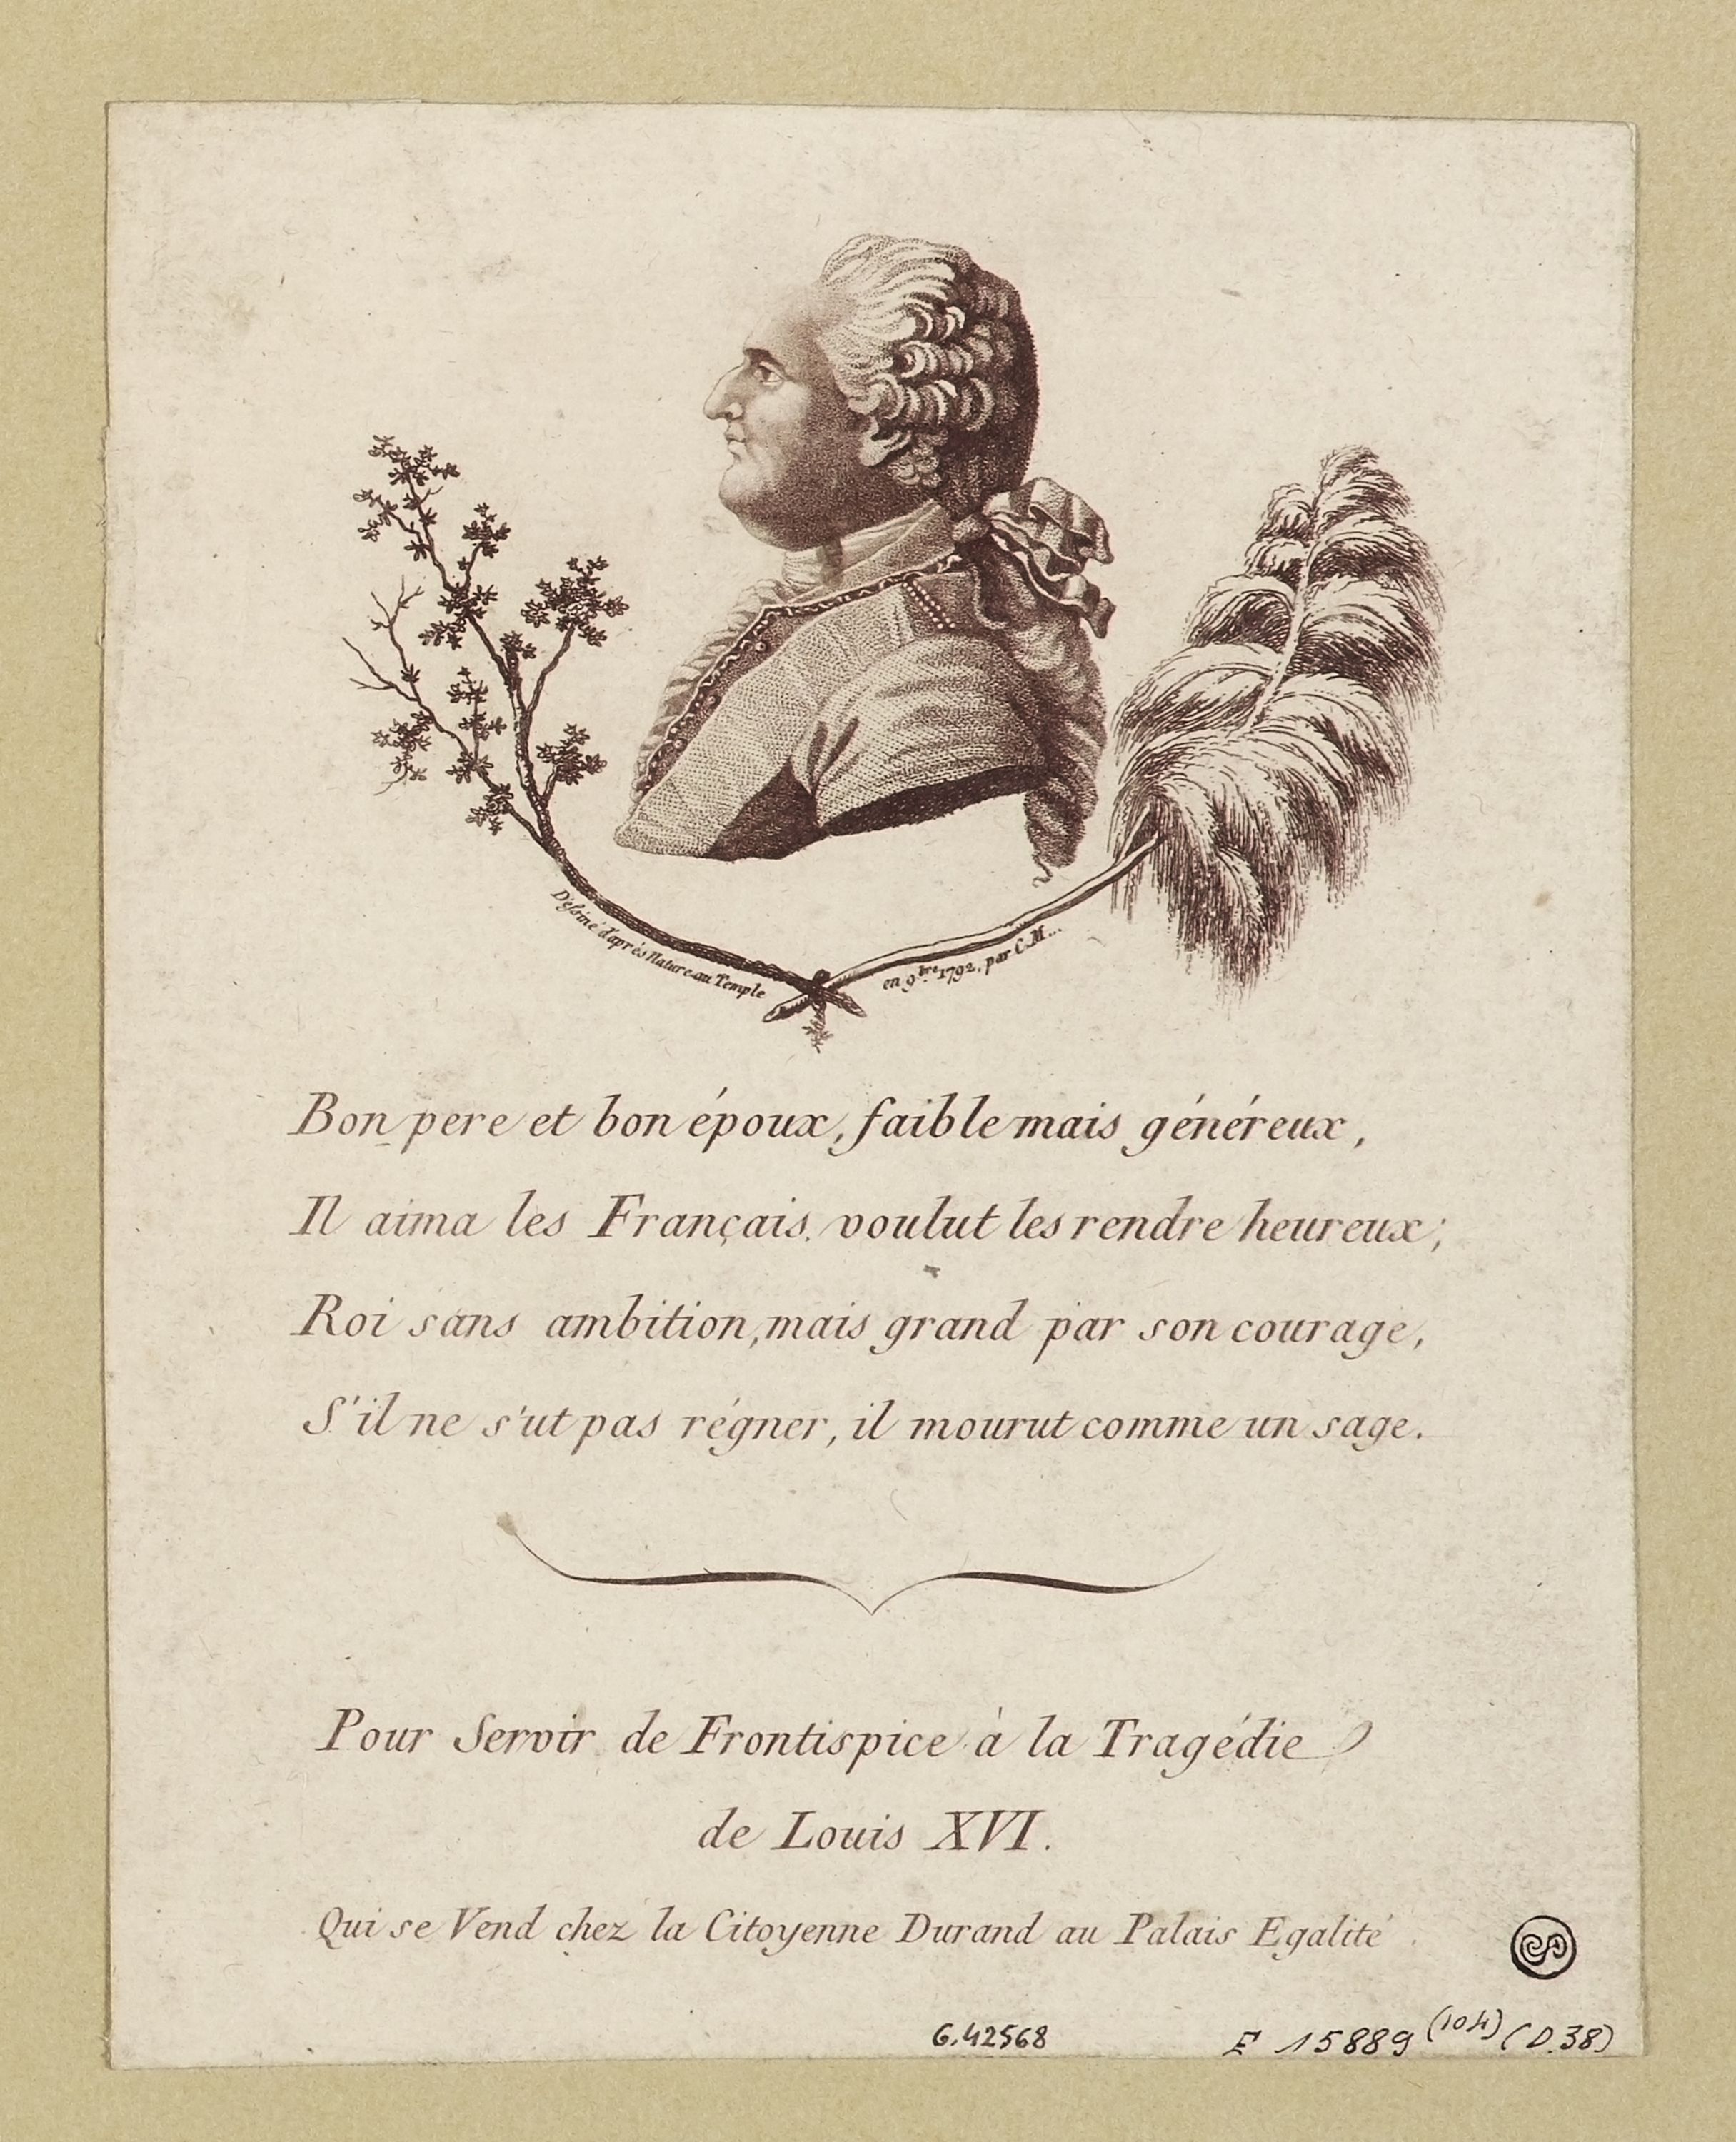 Dessiné d'après Nature au Temple
en 9.bre 1792, par C.M...
Bon pere et bon époux, faible mais généreux,
Il aima les Français. voulut les rendre heureux;
Roi sans ambition, mais grand par son courage,
S'il ne s'ut pas régner, il mourut comme un sage.
Pour Servir de Frontispice à la Tragédie
de Louis XVI.
Qui se Vend chez la Citoyenne Durand au Palais Egalité.
G.42568
E 15889 (104) (D.38)